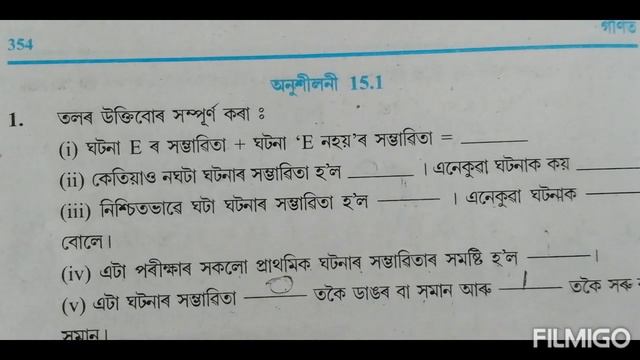 গণিত
354
অনুশীলনী 15.1
1. তলৰ উক্তিবোৰ সম্পূৰ্ণ কৰা :
(i) ঘটনা E ৰ সম্ভাৱিতা + ঘটনা ‘E নহয়’ৰ সম্ভাৱিতা = ______
(ii) কেতিয়াও নঘটা ঘটনাৰ সম্ভাৱিতা হ’ল ______ । এনেকুৱা ঘটনাক কয় ______
(iii) নিশ্চিতভাৱে ঘটা ঘটনাৰ সম্ভাৱিতা হ’ল ______ । এনেকুৱা ঘটনাক ______
বোলে।
(iv) এটা পৰীক্ষাৰ সকলো প্ৰাথমিক ঘটনাৰ সম্ভাৱিতাৰ সমষ্টি হ’ল ______ ।
(v) এটা ঘটনাৰ সম্ভাৱিতা ___0___ তকৈ ডাঙৰ বা সমান আৰু ___1___ তকৈ সৰু
সমান।
FILMIGO